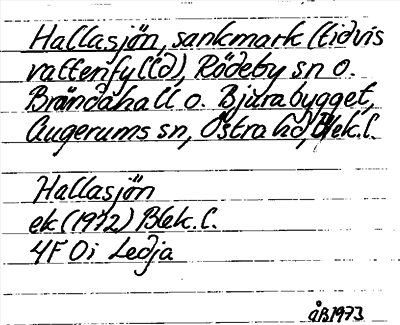 Hallasjön, sankmark (tidvis
vattenfylld), Rödeby sn o.
Brändahall o. Bjurabygget,
Augerums sn, Östra hd, Blek. l.
Hallasjön
ek (1972) Blek. l.
4F 0i Ledja
ÅB 1973